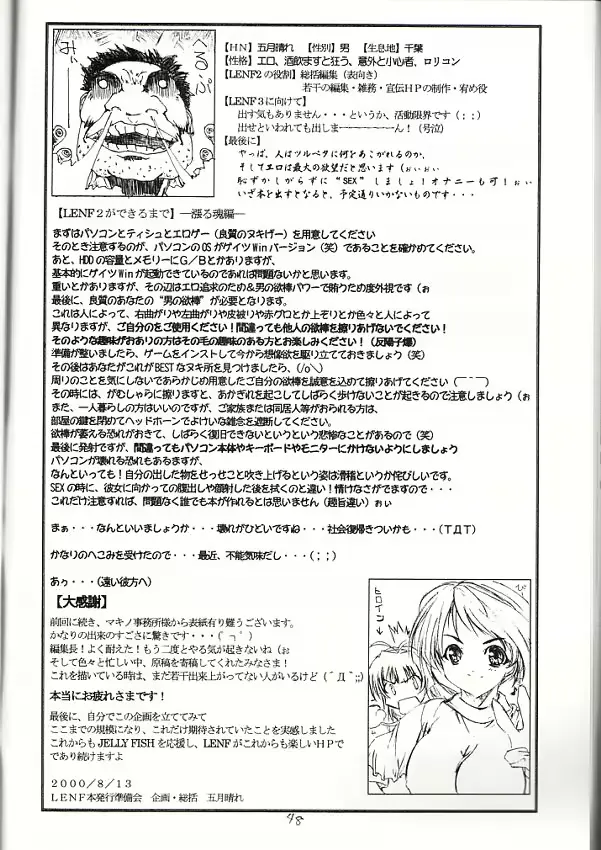 へるぷ
みぃ
【HN】五月晴れ 【性別】男 【生息地】千葉
【性格】エロ、酒飲ますと狂う、意外と小心者、ロリコン
【LENF2の役割】総括編集（表向き）
若干の編集・雑務・宣伝HPの制作・宥め役
【LENF3に向けて】
出す気もありません・・・というか、活動限界です（；；）
出せといわれても出しまーーーーーーん！（号泣）
【最後に】
やっぱ、人はツルペタに何をあこがれるのか、
そしてエロは最大の欲望だと思います（ぉぃぉぃ
恥ずかしがらずに“SEX”しましょ！オナニーも可！ぉぃ
いざ本を出すとなると、予定通りいかないものです・・・
【LENF2ができるまで】―漲る魂編―
まずはパソコンとティシュとエロゲー（良質のヌキゲー）を用意してください
そのとき注意するのが、パソコンのOSがゲイツWinバージョン（笑）であることを確かめてください。
あと、HDDの容量とメモリーにG／Bとかありますが、
基本的にゲイツWinが起動できているのであれば問題ないかと思います。
重いとかありますが、その辺はエロ追求のため&男の欲棒パワーで賄うため度外視です（ぉ
最後に、良質のあなたの“男の欲棒”が必要となります。
これは人によって、右曲がりや左曲がりや皮被りや赤グロとか上ぞりとか色々と人によって
異なりますが、ご自分のをご使用ください！間違っても他人の欲棒を擦りあげないでください！
そのような趣味がおありの方はその毛の趣味のある方とお楽しみください！（反陽子爆）
準備が整いましたら、ゲームをインストして今から想像欲を駆り立てておきましょう（笑）
その後はあなたがこれがBESTなヌキ所を見つけましたら、（/o＼）
周りのことを気にしないであらかじめ用意したご自分の欲棒を誠意を込めて擦りあげてください（￣ー￣）
その時には、がむしゃらに擦りますと、あかぎれを起こしてしばらく歩けないことが起きるので注意しましょう（ぉ
また、一人暮らしの方はいいのですが、ご家族または同居人等がおられる方は、
部屋の鍵を閉めてヘッドホーンでよけいな雑念を遮断してください。
欲棒が萎える恐れがおきて、しばらく復旧できないというという悲惨なことがあるので（笑）
最後に発射ですが、間違ってもパソコン本体やキーボードやモニターにかけないようにしましょう
パソコンが壊れる恐れもあるますが、
なんといっても！自分の出した物をせっせこと吹き上げるという姿は滑稽というか侘びしいです。
SEXの時に、彼女に向かっての腹出しや顔射した後を拭くのと違い！情けなさがでますので・・・
これだけ注意すれば、問題なく誰でも本が作れるとは思いません（趣旨違い）ぉぃ
まぁ・・・なんといいましょうか・・壊れがひどいですね・・・社会復帰きついかも・・・（TДT）
かなりのへこみを受けたので・・・最近、不能気味だし・・・（；；）
あぅ・・・（遠い彼方へ）
【大感謝】
前回に続き、マキノ事務所様から表紙有り難うございます。
かなりの出来のすごさに驚きです・・・（ﾟ┐ﾟ）
編集長！よく耐えた！もう二度とやる気が起きないね（ぉ
そして色々と忙しい中、原稿を寄稿してくれたみなさま！
これを描いている時は、まだ若干出来上がってない人がいるけど（´Д｀;;）
本当にお疲れさまです！
最後に、自分でこの企画を立ててみて
ここまでの規模になり、これだけ期待されていたことを実感しました
これからもJELLY FISHを応援し、LENFがこれからも楽しいHPで
であり続けますよ
2000／8／13
LENF本発行準備会 企画・総括 五月晴れ
ヒロイン
ぴ
48